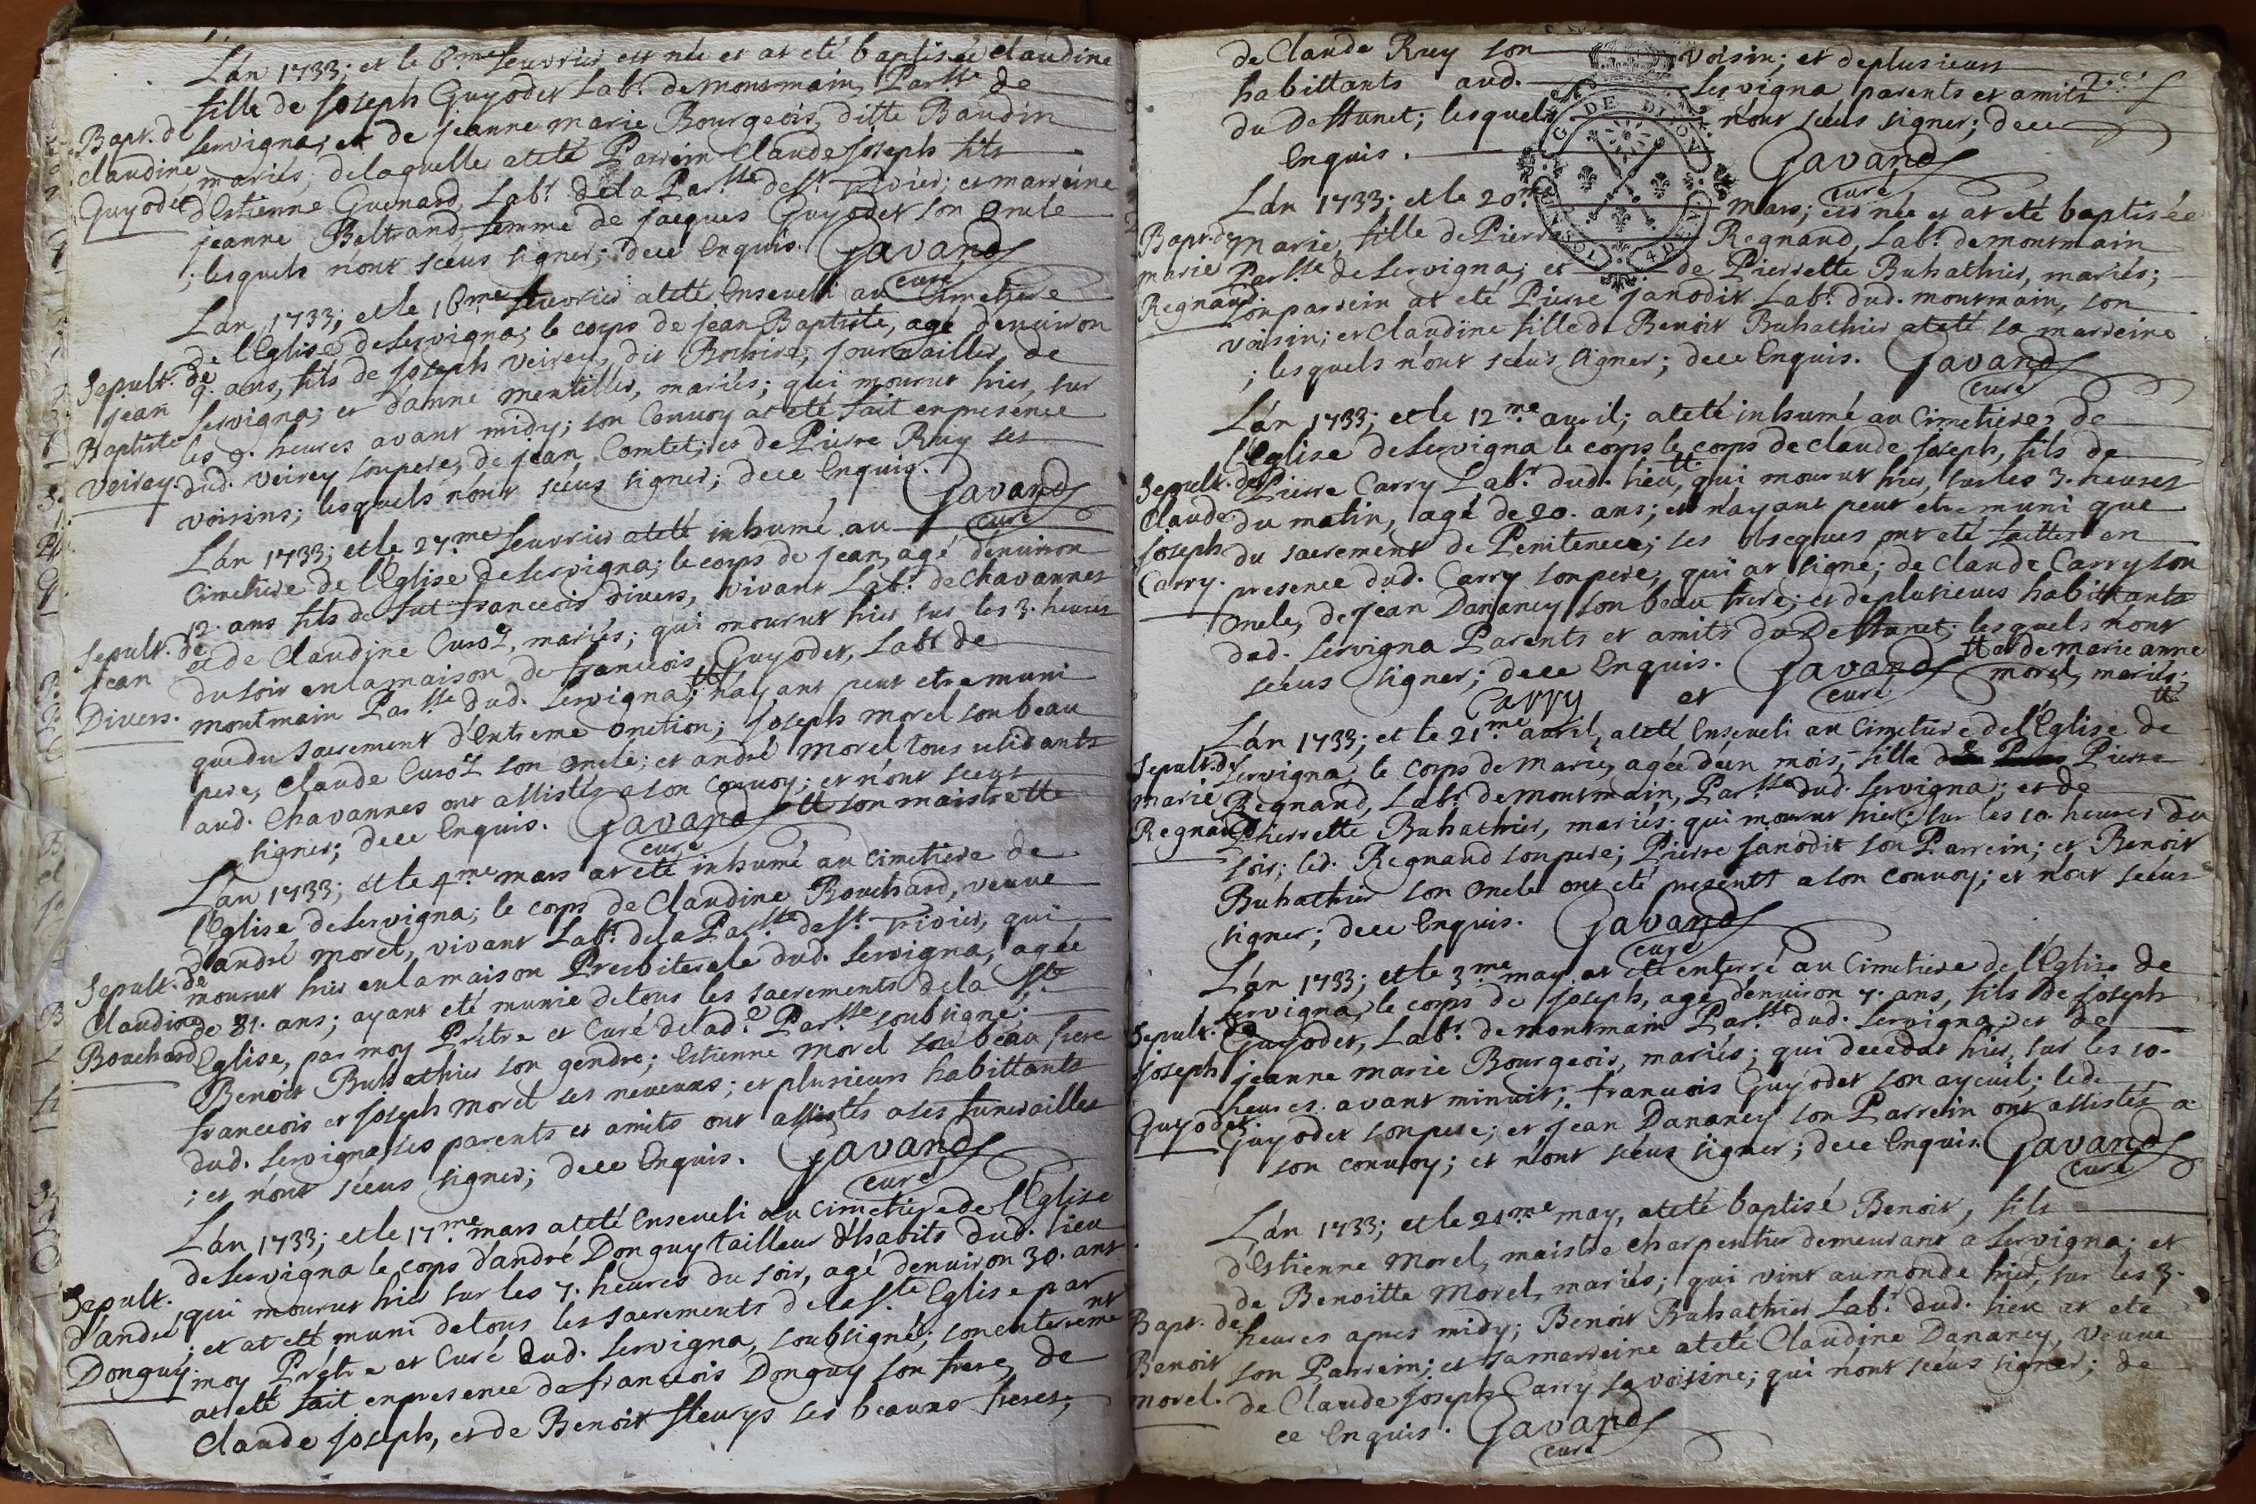 L'an 1733; et le 6.me feuvrier est née et at eté baptisée Claudine
fille de Joseph Guyodet Lab.r de montmain, Par.sse de
Servigna; et de jeanne marie Bourgeois, ditte Baudin
mariés; de laquelle at eté Parrein Claude Joseph fils
d'Estienne Guenard, Lab.r de la Par.sse de S.t trivier; et marreine
jeanne Beltrand, femme de jacques Guyodet son oncle
; lesquels n'ont sceus signer; de ce Enquis. Gavand
curé
Bapt. de
Claudine
Guyodet
L'an 1733; et le 16.me feuvrier at eté Enseveli au Cimetiere
de l'Eglise de Servigna; le corps de jean Baptiste, agé d'enuiron
9. ans, fils de Joseph Veirey, dit journailler, de
Servigna; et d'anne mentiller, mariés; qui mourut hier, sur
les 9. heures avant midy; son Convoy at eté fait en presence
dud. Veirey son pere, de jean Comtet; et de Pierre Ruy ses
voisins; lesquels n'ont sceus signer; de ce Enquis. Gavand
curé
Sepult. de
jean
Baptiste
Veirey.
L'an 1733; et le 27.me feuvrier at eté inhumé au
Cimetiere de l'Eglise de Servigna; le corps de jean, agé d'enuiron
12. ans fils de fut francois Divers, vivant Lab.r de Chavannes
et de Claudine mariés; qui mourut hier sur les 3. heures
du soir en la maison de francois Guyodet, Lab.r de
montmain Par.sse dud. Servigna; # n'ayant peut etre muni
que du Sacrement d'Extreme Onction; Joseph morel son beau
pere, Claude son oncle; et andré morel tous residants
aud. Chavannes ont assistés a son Convoy; et n'ont sceus
signer; de ce Enquis. Gavand # son maistre #
curé
Sepult. de
jean
Divers.
L'an 1733; et le 4.me mars at eté inhumé au Cimetiere de
l'Eglise de Servigna; le corps de Claudine Bouchard, veuve
d'andré morel, vivant Lab.r de la Par.sse de S.t trivier, qui
mourut hier en la maison Presbiterale dud. Servigna, agée
de 81. ans; ayant eté munie de tous les sacrements de la S.te
Eglise, par moy Prêtre et Curé de lad.e Par.sse soubsigné;
Benoit Buhathier son gendre; Estienne morel son beau frere
francois et Joseph morel ses neveux; et plusieurs habittants
dud. Servigna ses parents et amits ont assistés a ses funerailles
; et n'ont sceus signer; de ce Enquis. Gavand
curé
Sepult. de
Claudine
Bouchard
L'an 1733; et le 17.me mars at eté Enseveli au Cimetiere de l'Eglise
de Servigna le corps d'andré Donguy tailleur d'habits dud. lieu
qui mourut hier sur les 7. heures du soir, agé d'enuiron 30. ans
; et at eté muni de tous les sacrements de la S.te Eglise par
moy Prêtre et Curé dud. Servigna, soubsigné; son enterement
at eté fait en presence de francois Donguy son frere, de
Claude Joseph, et de Benoit fleurys ses beaux freres;
Sepult.
d'andré
Donguy.
de Claude Ruy son voisin; et de plusieurs
habittants aud. Servigna parents et amits
du Deffunct; lesquels n'ont sceus signer; de ce
Enquis. Gavand
curé
G. DE DIJON
L'an 1733; et le 20.me mars; est née et at eté baptisée
Marie, fille de Pierre Regnaud, Lab.r de montmain
Par.sse de Servigna; et de Pierrette Buhathier, mariés;
son parrein at eté Pierre janodit Lab.r dud. montmain, son
voisin; et Claudine fille de Benoit Buhathier at eté sa marreine
; lesquels n'ont sceus signer; de ce Enquis. Gavand
curé
Bapt. de
marie
Regnaud.
L'an 1733; et le 12.me avril; at eté inhumé au Cimetiere de
l'Eglise de Servigna le corps le corps de Claude Joseph, fils de
Pierre Carry Lab.r dud. lieu, # qui mourut hier, sur les 3. heures
du matin, agé de 20. ans; et n'ayant peut etre muni que
du sacrement de Penitence; ses obseques ont eté faittes en
presence dud. Carry son pere, qui at signé; de Claude Carry son
oncle, de jean Danancy son beau frere; et de plusieurs habittants
dud. Servigna Parents et amits du Deffunct; lesquels n'ont
sceus signer; de ce Enquis. Gavand # et de marie anne
Carry et curé morel, mariés; #
Sepult. de
Claude
Joseph
Carry.
L'an 1733; et le 21.me avril, at eté Enseveli au Cimetiere de l'Eglise de
Servigna, le corps de Marie, agée d'un mois, fille de Pierre
Regnaud, Lab.r de montmain, Par.sse dud. Servigna; et de
Pierrette Buhathier, mariés; qui mourut hier sur les 10. heures du
soir; led. Regnaud son pere; Pierre janodit son Parrein; et Benoit
Buhathier son oncle ont eté presents a son convoy; et n'ont sceus
signer; de ce Enquis. Gavand
curé
Sepult. de
marie
Regnaud
L'an 1733; et le 3.me may at eté enterré au Cimetiere de l'Eglise de
Servigna, le corps de Joseph, agé d'enuiron 7. ans, fils de Joseph
Guyodet, Lab.r de montmain Par.sse dud. Servigna; et de
jeanne marie Bourgeois, mariés; qui decedat hier, sur les 10.
heures avant minuit; francois Guyodet son ayeuil; led.
Guyodet son pere; et jean Danancy son Parrein ont assistés a
son convoy; et n'ont sceus signer; de ce Enquis. Gavand
curé
Sepult. de
Joseph
Guyodet
L'an 1733; et le 21.me may, at eté baptisé Benoit, fils
d'Estienne Morel, maistre charpentier demeurant a Servigna; et
de Benoitte Morel, mariés; qui vint au monde hier, sur les 3.
heures apres midy; Benoit Buhathier Lab.r dud. lieu at eté
son Parrein; et sa marreine at eté Claudine Danancy, veuve
de Claude Joseph Carry sa voisine; qui n'ont sceus signer; de
ce Enquis. Gavand
curé
Bapt. de
Benoit
morel.